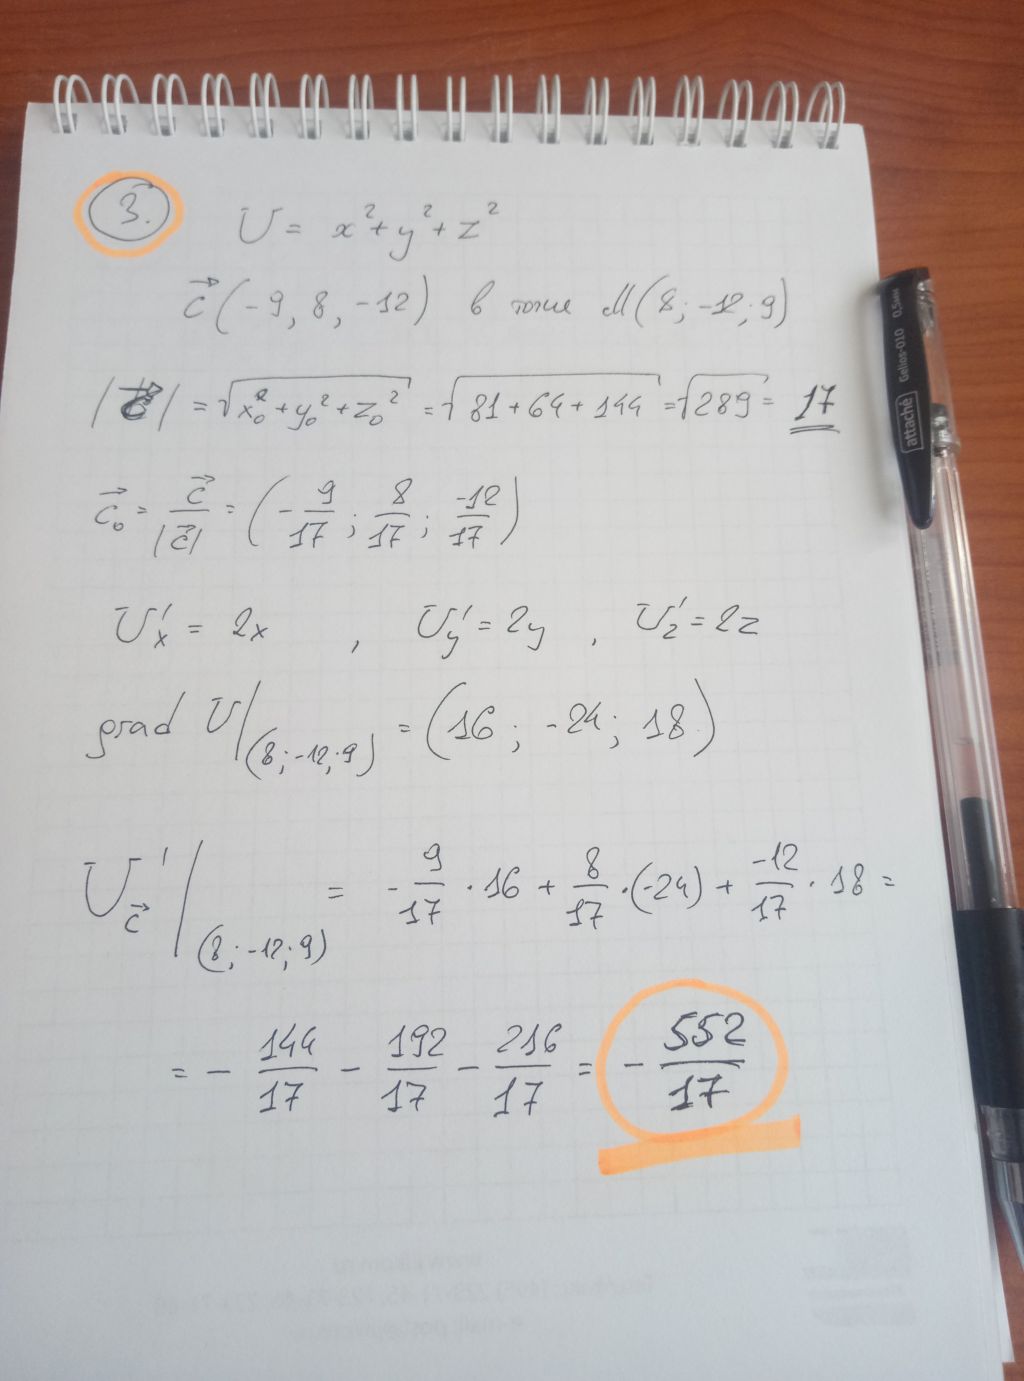 3.
U = x² + y² + z²
c⃗ (-9, 8, -12) в точке M(8; -12; 9)
|c⃗| = √(x₀² + y₀² + z₀²) = √(81 + 64 + 144) = √289 = 17
c⃗₀ = c⃗/|c⃗| = (-9/17; 8/17; -12/17)
U'x = 2x , U'y = 2y , U'z = 2z
grad U|(8; -12; 9) = (16; -24; 18)
U'c⃗|(8; -12; 9) = -9/17 · 16 + 8/17 · (-24) + -12/17 · 18 =
= - 144/17 - 192/17 - 216/17 = - 552/17
attaché Gelios-010 0,5мм